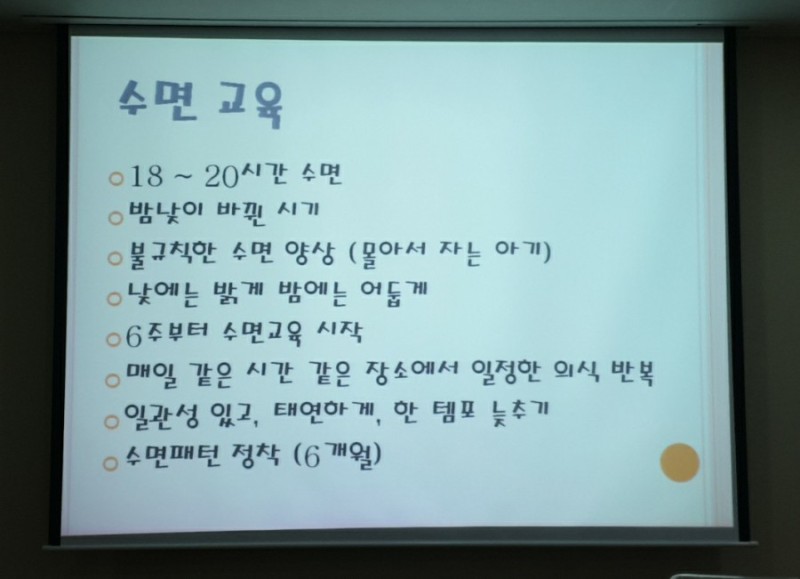 수면 교육
18 ~ 20시간 수면
밤낮이 바뀐 시기
불규칙한 수면 양상 (몰아서 자는 아기)
낮에는 밝게 밤에는 어둡게
6주부터 수면교육 시작
매일 같은 시간 같은 장소에서 일정한 의식 반복
일관성 있고, 태연하게, 한 템포 늦추기
수면패턴 정착 (6개월)